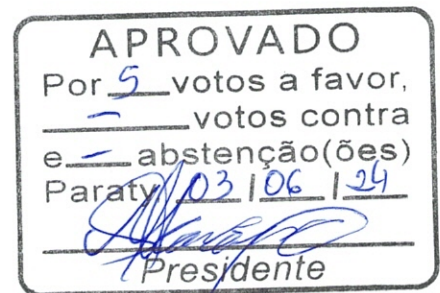 APROVADO
Por 5 votos a favor,
- votos contra
e - abstenção(ões)
Paraty 03 | 06 | 24
Presidente